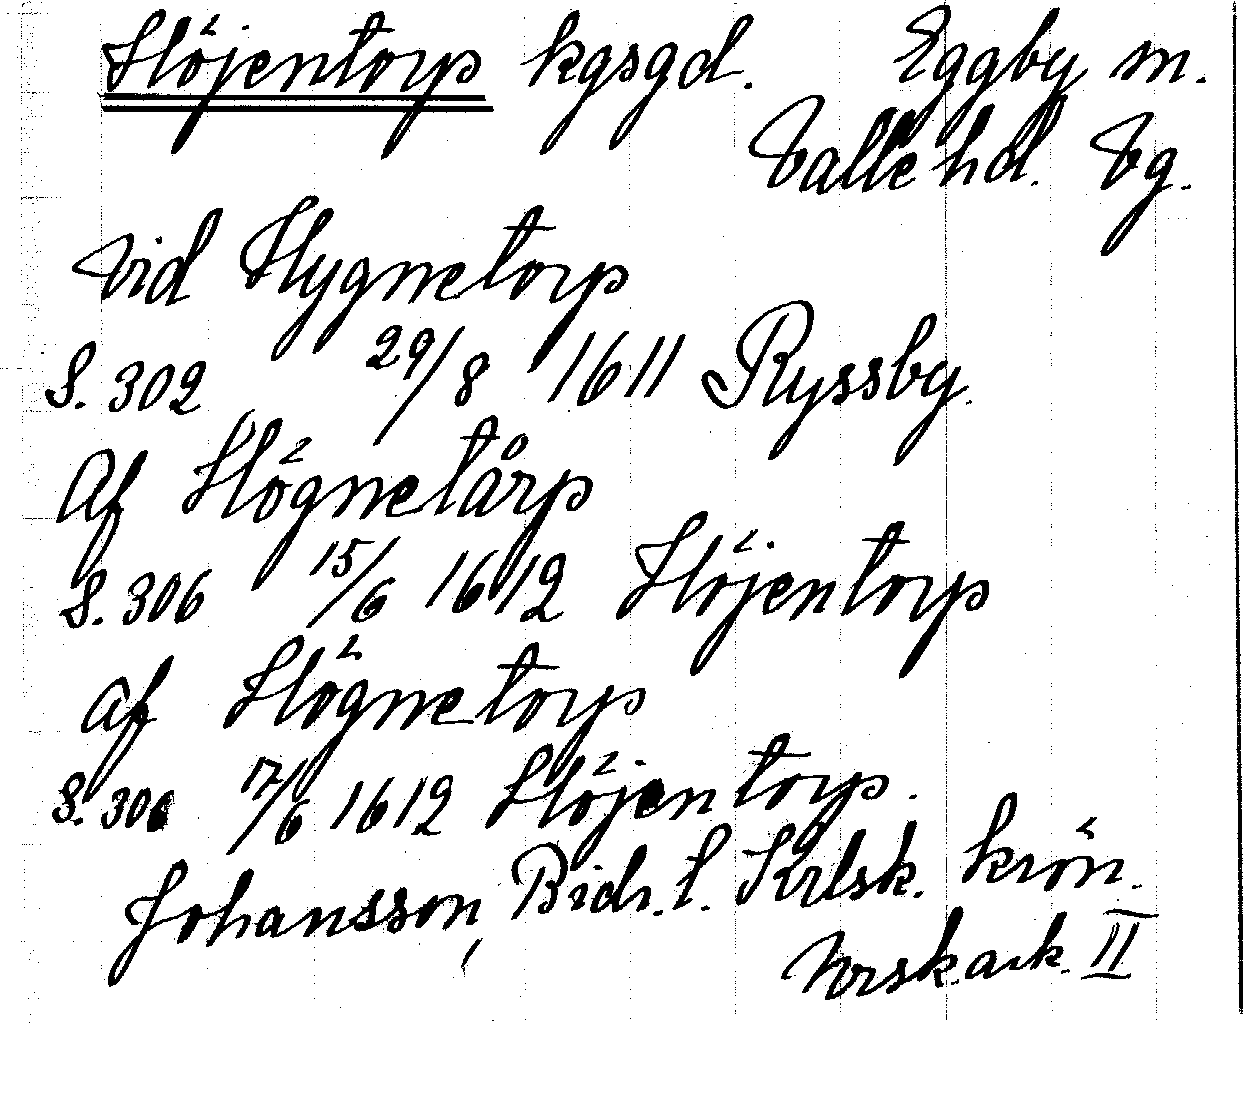 Höjentorp kgsgd. Eggby sn.
Valle hd. Vg.
Vid Hygnetorp
S. 302 29/8 1611 Ryssby.
Af Högnetårp
S. 306 15/6 1612 Höjentorp
af Högnetorp
S. 306 17/6 1612 Höjentorp.
Johansson, Bidr. t. Krlsk. krön.
Norsk. ark. II